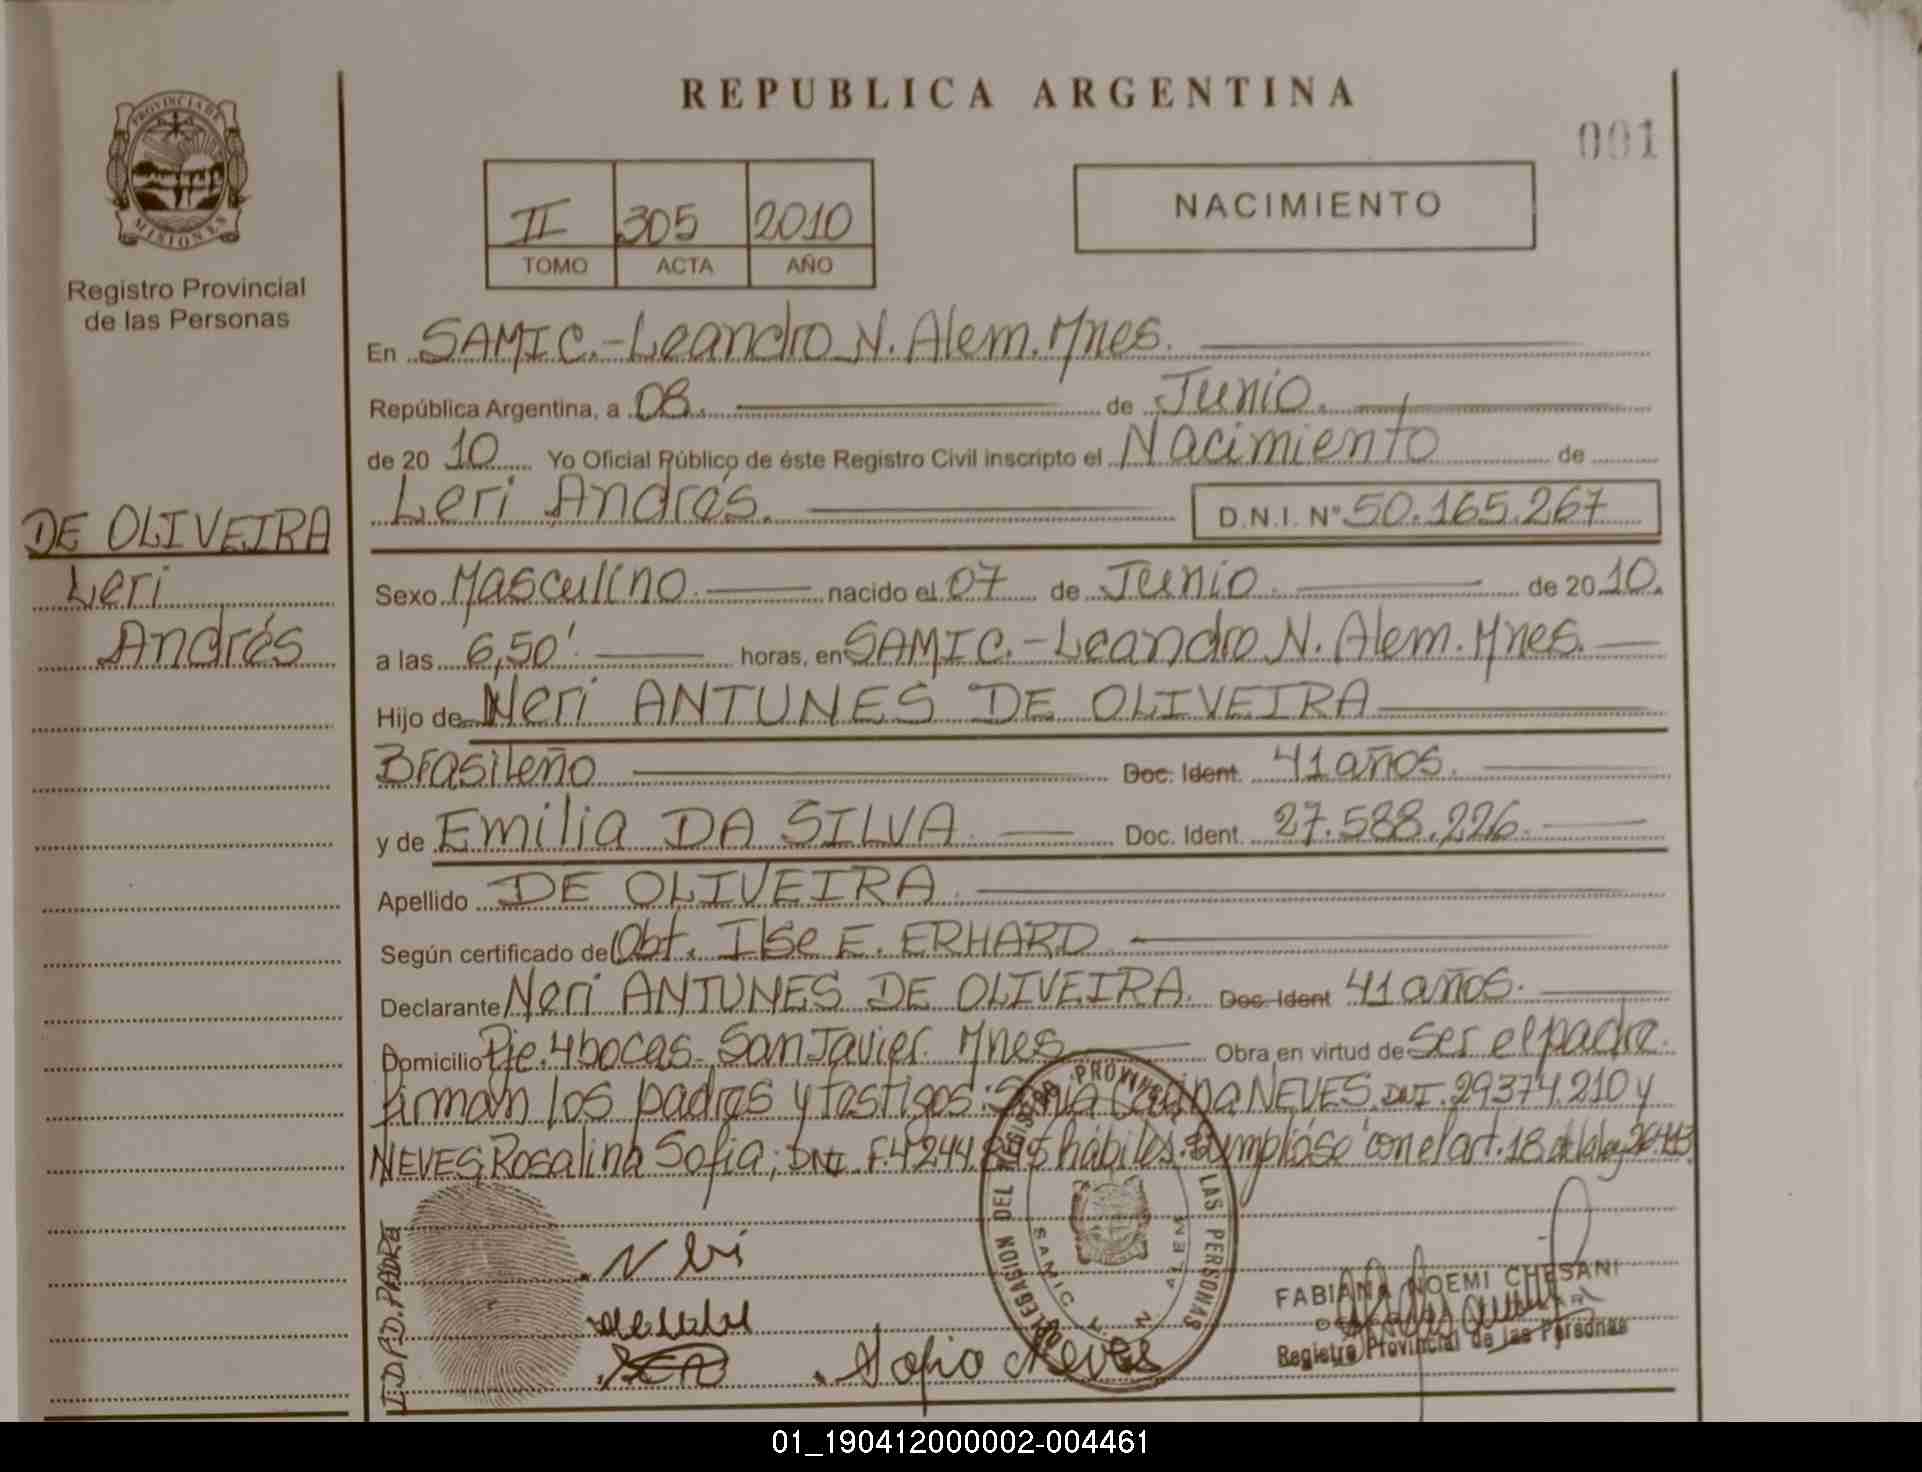 REPUBLICA ARGENTINA
001
PROVINCIA DE
MISIONES
Registro Provincial
de las Personas
II 305 2010
TOMO ACTA AÑO
NACIMIENTO
En SAMIC.-Leandro N. Alem. Mnes.
República Argentina, a 08. de Junio.
de 20 10 Yo Oficial Público de éste Registro Civil inscripto el Nacimiento de
Leri Andrés. D.N.I. Nº 50.165.267
DE OLIVEIRA
Leri
Andrés
Sexo Masculino. nacido el 07 de Junio. de 20 10.
a las 6,50' horas, en SAMIC.-Leandro N. Alem. Mnes.
Hijo de Neri ANTUNES DE OLIVEIRA
Brasileño Doc. Ident. 41 años.
y de Emilia DA SILVA. Doc. Ident. 27.588.226.
Apellido DE OLIVEIRA.
Según certificado de Obt. Ilse E. ERHARD.
Declarante Neri ANTUNES DE OLIVEIRA. Doc. Ident 41 años.
Domicilio Pje. 4 bocas. San Javier. Mnes Obra en virtud de Ser el padre.
firman los padres y testigos: NEVES. DNI. 29374.210 y
NEVES, Rosalina Sofia; DNI F.4244. hábiles. Cumplióse con el art. 18 de la ley
I.D.P.D. PADRE
DELEGACION DEL REGISTRO PROVINCIAL LAS PERSONAS
SAMIC L. N. ALEM
Sofia Neves
FABIANA NOEMI CHESANI
Registro Provincial de las Personas
01_190412000002-004461